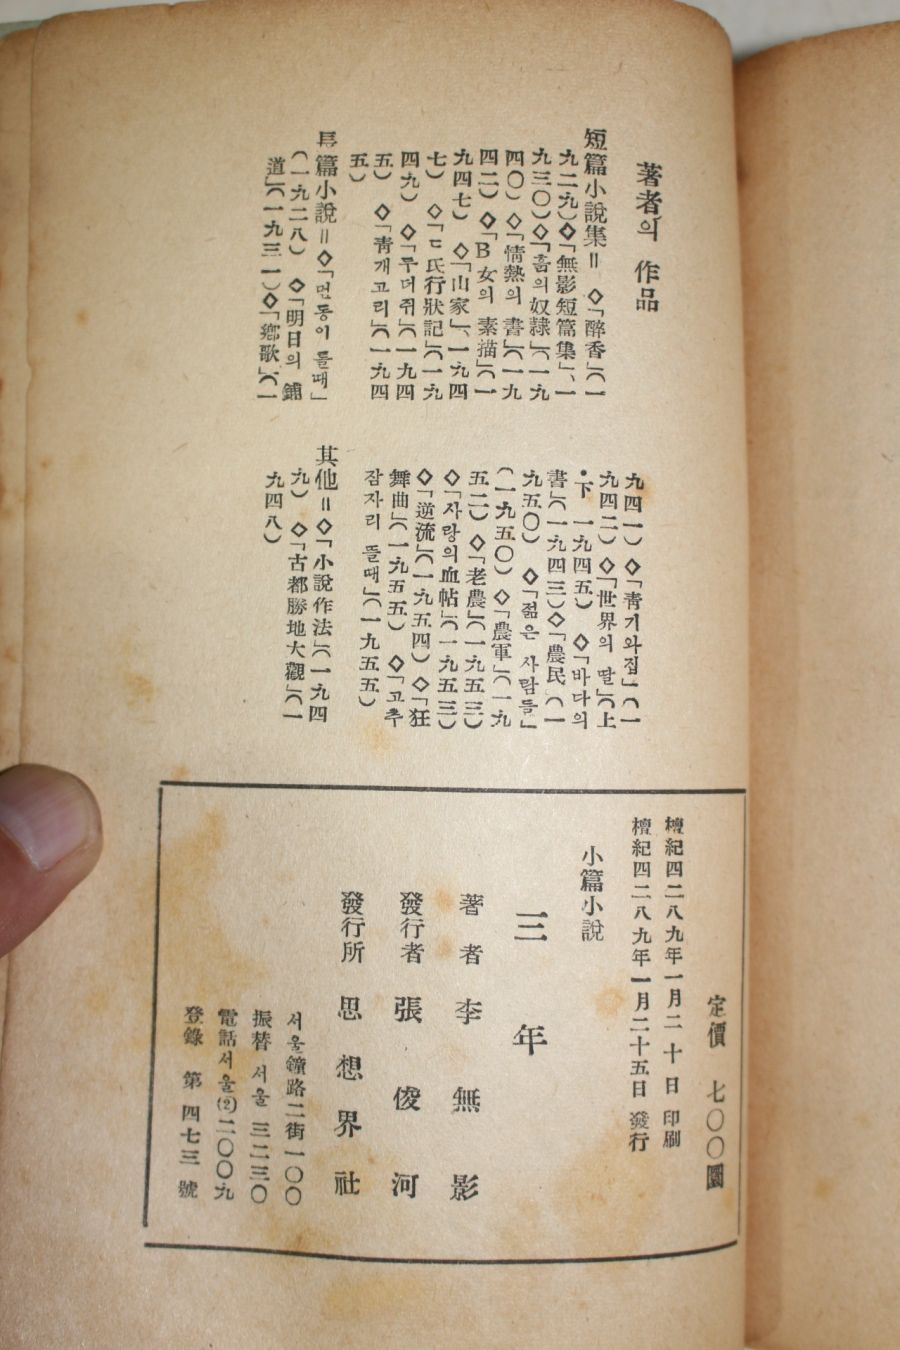 著者의 作品
短篇小說集＝ ◇「醉香」(一
九二九)◇「無影短篇集」、一
九三〇)◇「흙의 奴隷」(一九
四〇)◇「情熱의 書」(一九
四二)◇「B女의 素描」(一
九四七) ◇「山家」、一九四
七) ◇「ㄷ氏行狀記」(一九
四九) ◇「두더쥐」(一九四
五) ◇「靑개고리」(一九四
五)
長篇小說＝◇「먼동이 틀때」
(一九二八) ◇「明日의 鋪
道」(一九三一)◇「鄕歌」(一
九四一)◇「靑기와집」(一
九四二)◇「世界의 딸」(上
・下 一九四五) ◇「바다의
書」(一九四三)◇「農民」(一
九五〇) ◇「젊은 사람들」
(一九五〇) ◇「農軍」(一九
五二)◇「老農」(一九五三)
◇「사랑의 血帖」(一九五三)
◇「逆流」(一九五四)◇「狂
舞曲」(一九五五) ◇「고추
잠자리 뜰때」(一九五五)
其他＝◇「小說作法」(一九四
九) ◇「古都勝地大觀」(一
九四八)
定價 七〇〇圜
檀紀四二八九年一月二十日 印刷
檀紀四二八九年一月二十五日 發行
小篇小說
三年
著者 李無影
發行者 張俊河
發行所 思想界社
서울鐘路二街一〇〇
振替 서울 三二三〇
電話 서울(2)二〇〇九
登錄 第四七三號